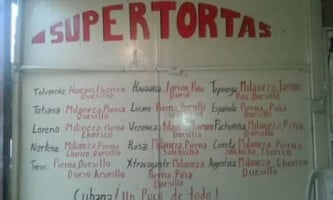 SUPERTORTAS
Toluqueña: Huevo, Chorizo
Quesillo
Tatiana: Milaneza, Pierna
Quesillo
Lorena: Milaneza, Pierna
Chorizo
Norteña: Milaneza, Pierna
Chorizo, Quesillo
Trevi: Pierna, Quesillo
Queso Amarillo
Hawaiana: Jamon, Piña
Lucero: Pierna, Quesillo
Veronica: Milaneza, Jamon
Quesillo
Rusa: Milaneza, Pierna
Salchicha
Xtravagante: Milaneza
Pierna, Quesillo
Milaneza, Jamon
Piña, Quesillo
Española: Pierna, Piña
Quesillo
Milaneza, Piña
Quesillo
Milaneza, Pierna
Salchicha, Chorizo
Argentina: Milaneza, Chorizo
Quesillo
Cubana ¡Un Poco de todo!